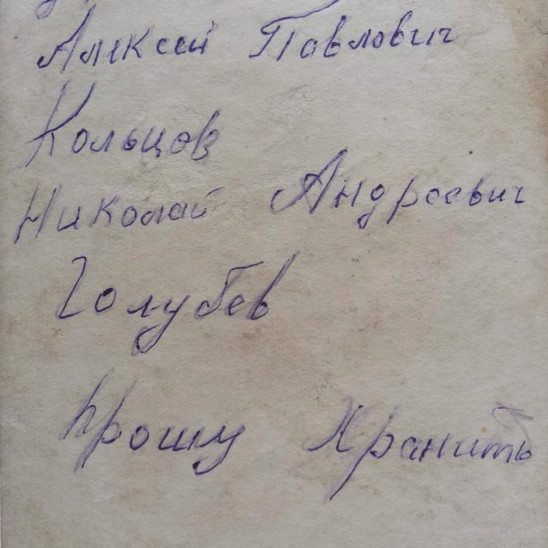 Алексей Павлович
Кольцов
Николай Андреевич
Голубев
Прошу Хранить